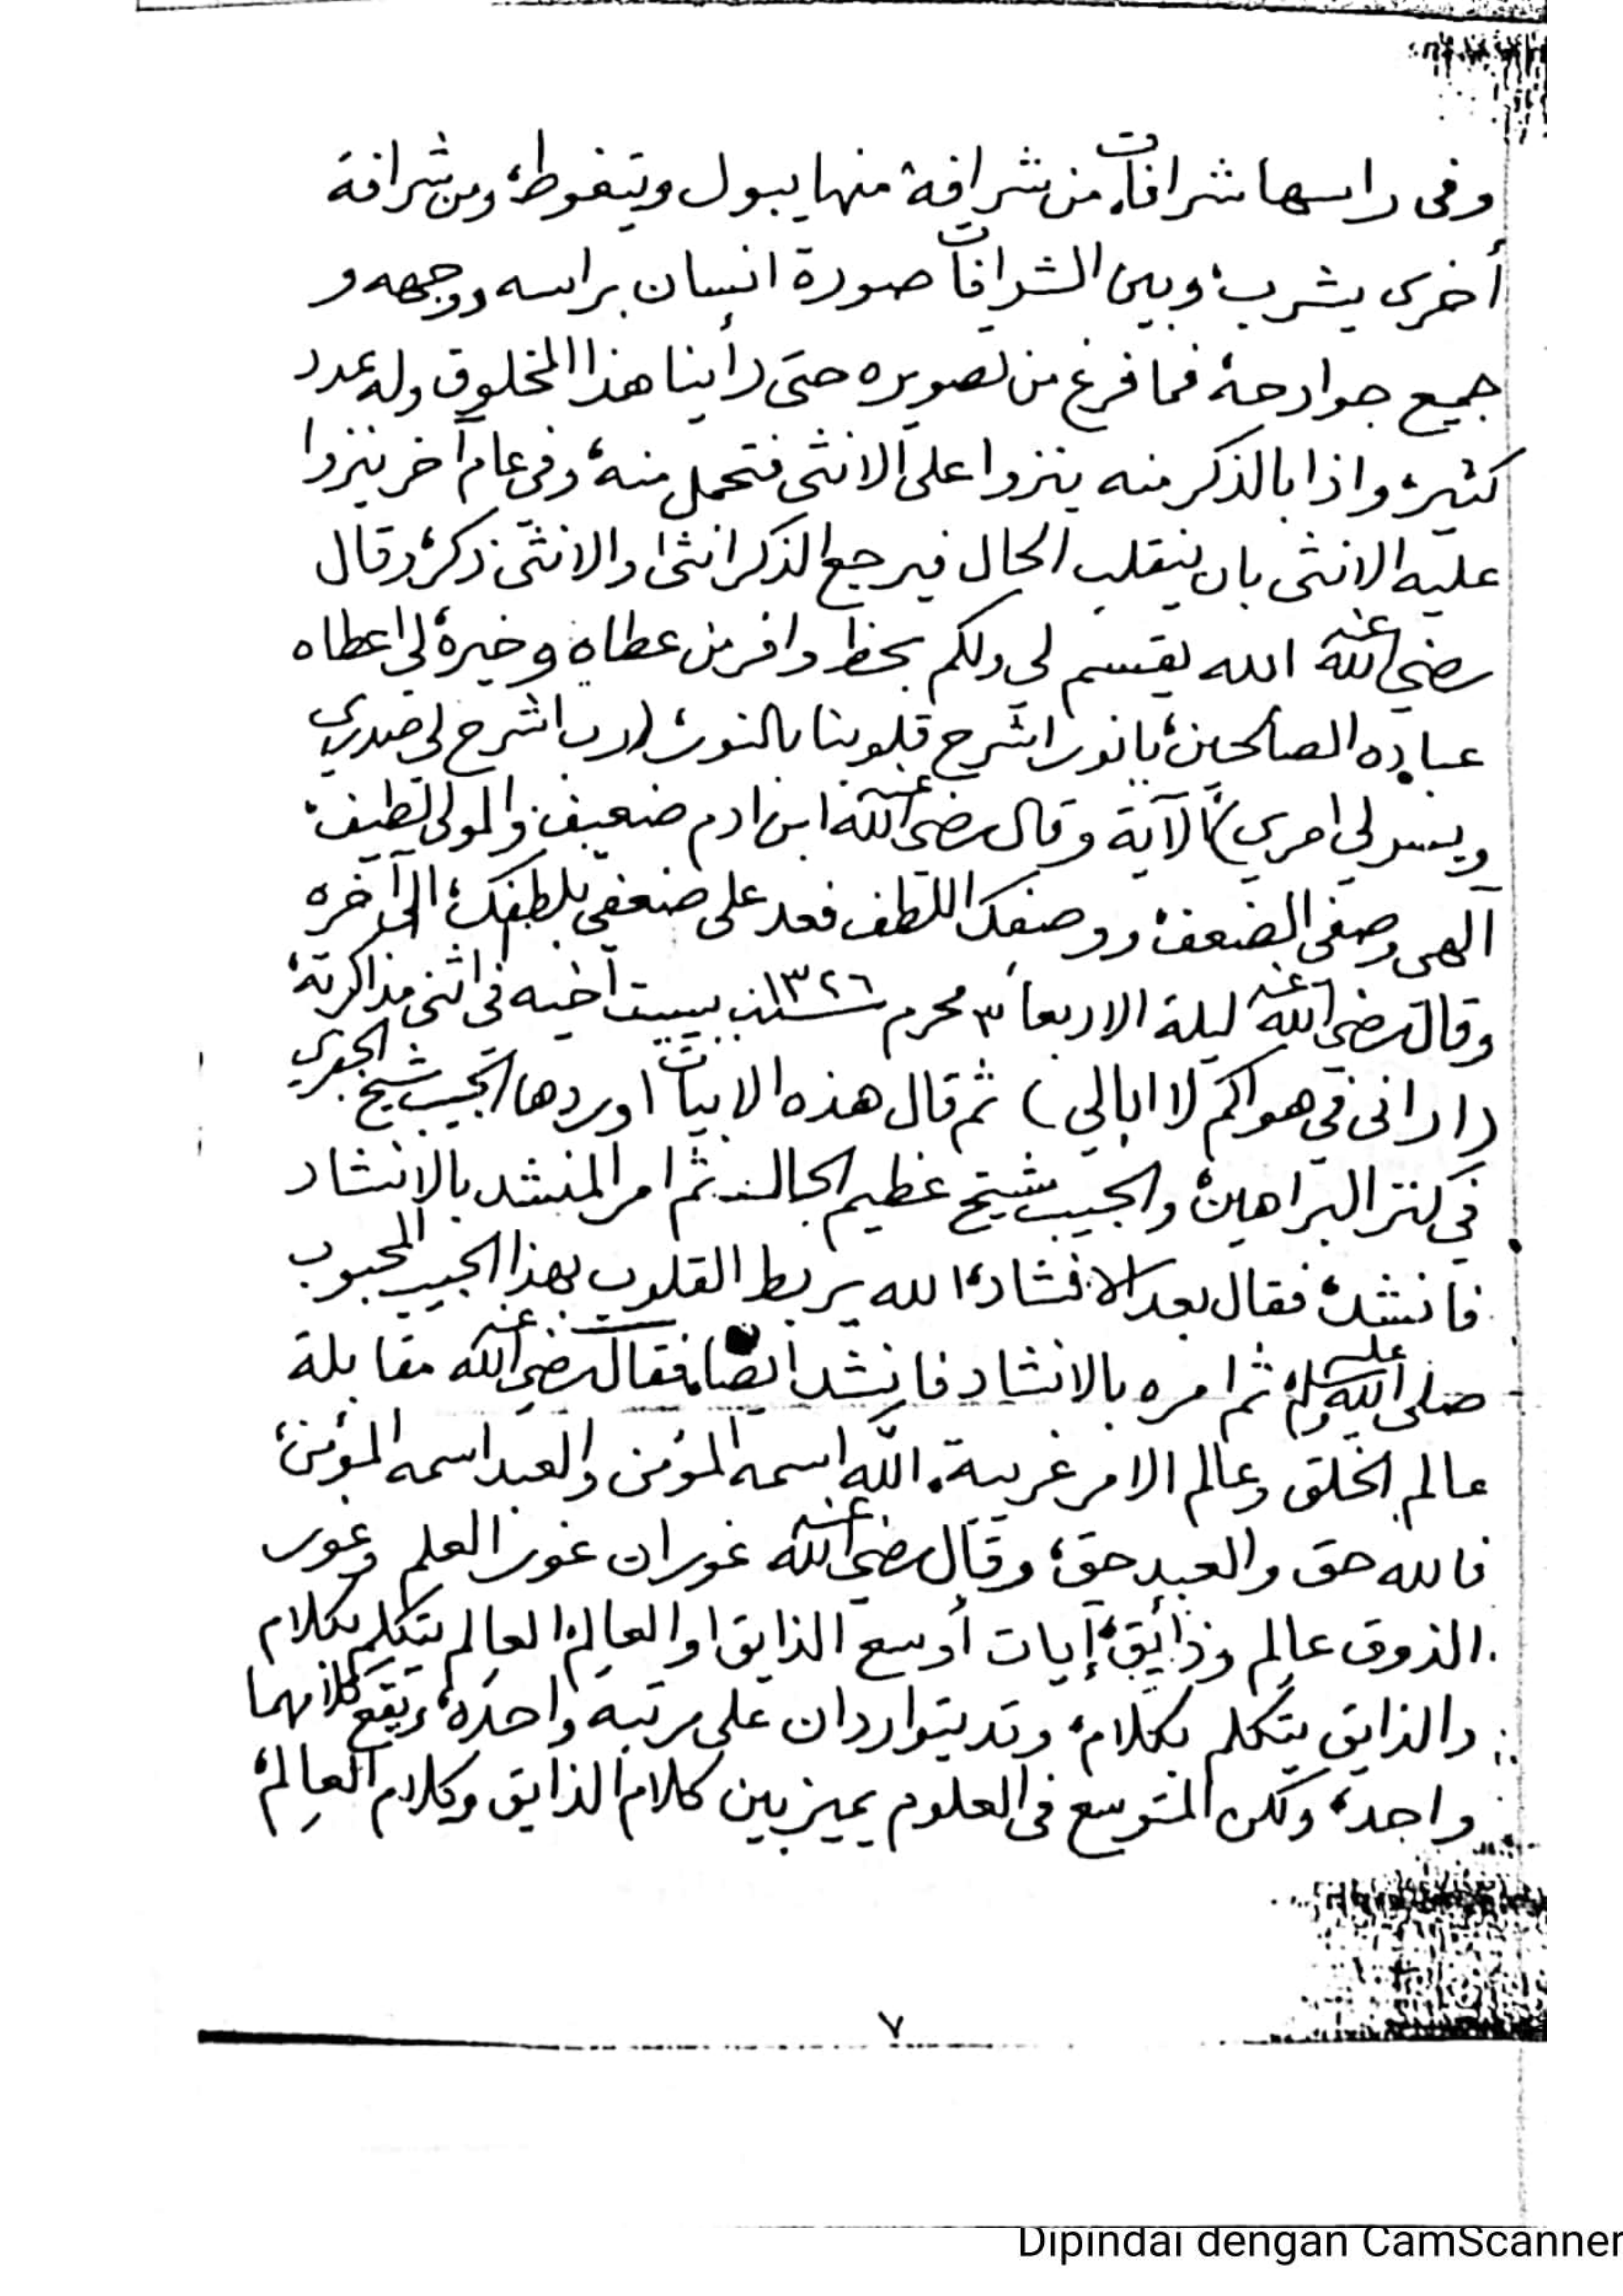 وفى راسها شرافات من شرافة منها يبول ويتغوط، ومن شرافة
أخرى يشرب، وبين الشرافات صورة انسان براسه ووجهه و
جميع جوارحه، فما فرغ من تصويره حتى رأينا هذا المخلوق وله عدد
كثير، واذا بالذكر منه ينزوا على الانثى فتحمل منه، وفى عام آخر ينزوا
عليه الانثى بان ينقلب الحال فيرجع الذكر انثى والانثى ذكر، وقال
رضي الله عنه الله يقسم لي ولكم بحظ وافر من عطاه وخيرة لي اعطاه
عباده الصالحين، يا نور اشرح قلوبنا بالنور، (رب اشرح لي صدري
ويسر لي امري) الآية وقال رضي الله عنه ابن ادم ضعيف والمولى لطيف،
آلهى وصفى الضعف، ووصفك اللطف فعد على ضعفي بلطفك، الى آخره
وقال رضي الله عنه ليلة الاربعا ٣ محرم سنة ١٣٢٦ ببيت أخيه فى اثنى مذاكرته،
(اراني في هواكم لا ابالي) ثم قال هذه الابيات اوردها الحبيب شيخ الجفري
في كنز البراهين، والحبيب شيخ عظيم الحال، ثم امر المنشد بالانشاد
فانشد، فقال بعد الانشاد، الله يربط القلوب بهذا الحبيب المحبوب
صلى الله عليه وسلم، ثم امره بالانشاد فانشد أيضا، فقال رضي الله عنه مقابلة
عالم الخلق وعالم الامر غريبة، الله اسمه المؤمن والعبد اسمه المؤمن،
فالله حق والعبد حق، وقال رضي الله عنه غوران غور العلم وغور
الذوق عالم وذائق، إيات أوسع الذايق او العالم، العالم يتكلم بكلام
والذايق يتكلم بكلام، وقد يتواردان على مرتبة واحدة، ويقع كلامهما
واحد، ولكن المتوسع فى العلوم يميز بين كلام الذايق وكلام العالم،
٧
Dipindai dengan CamScanner